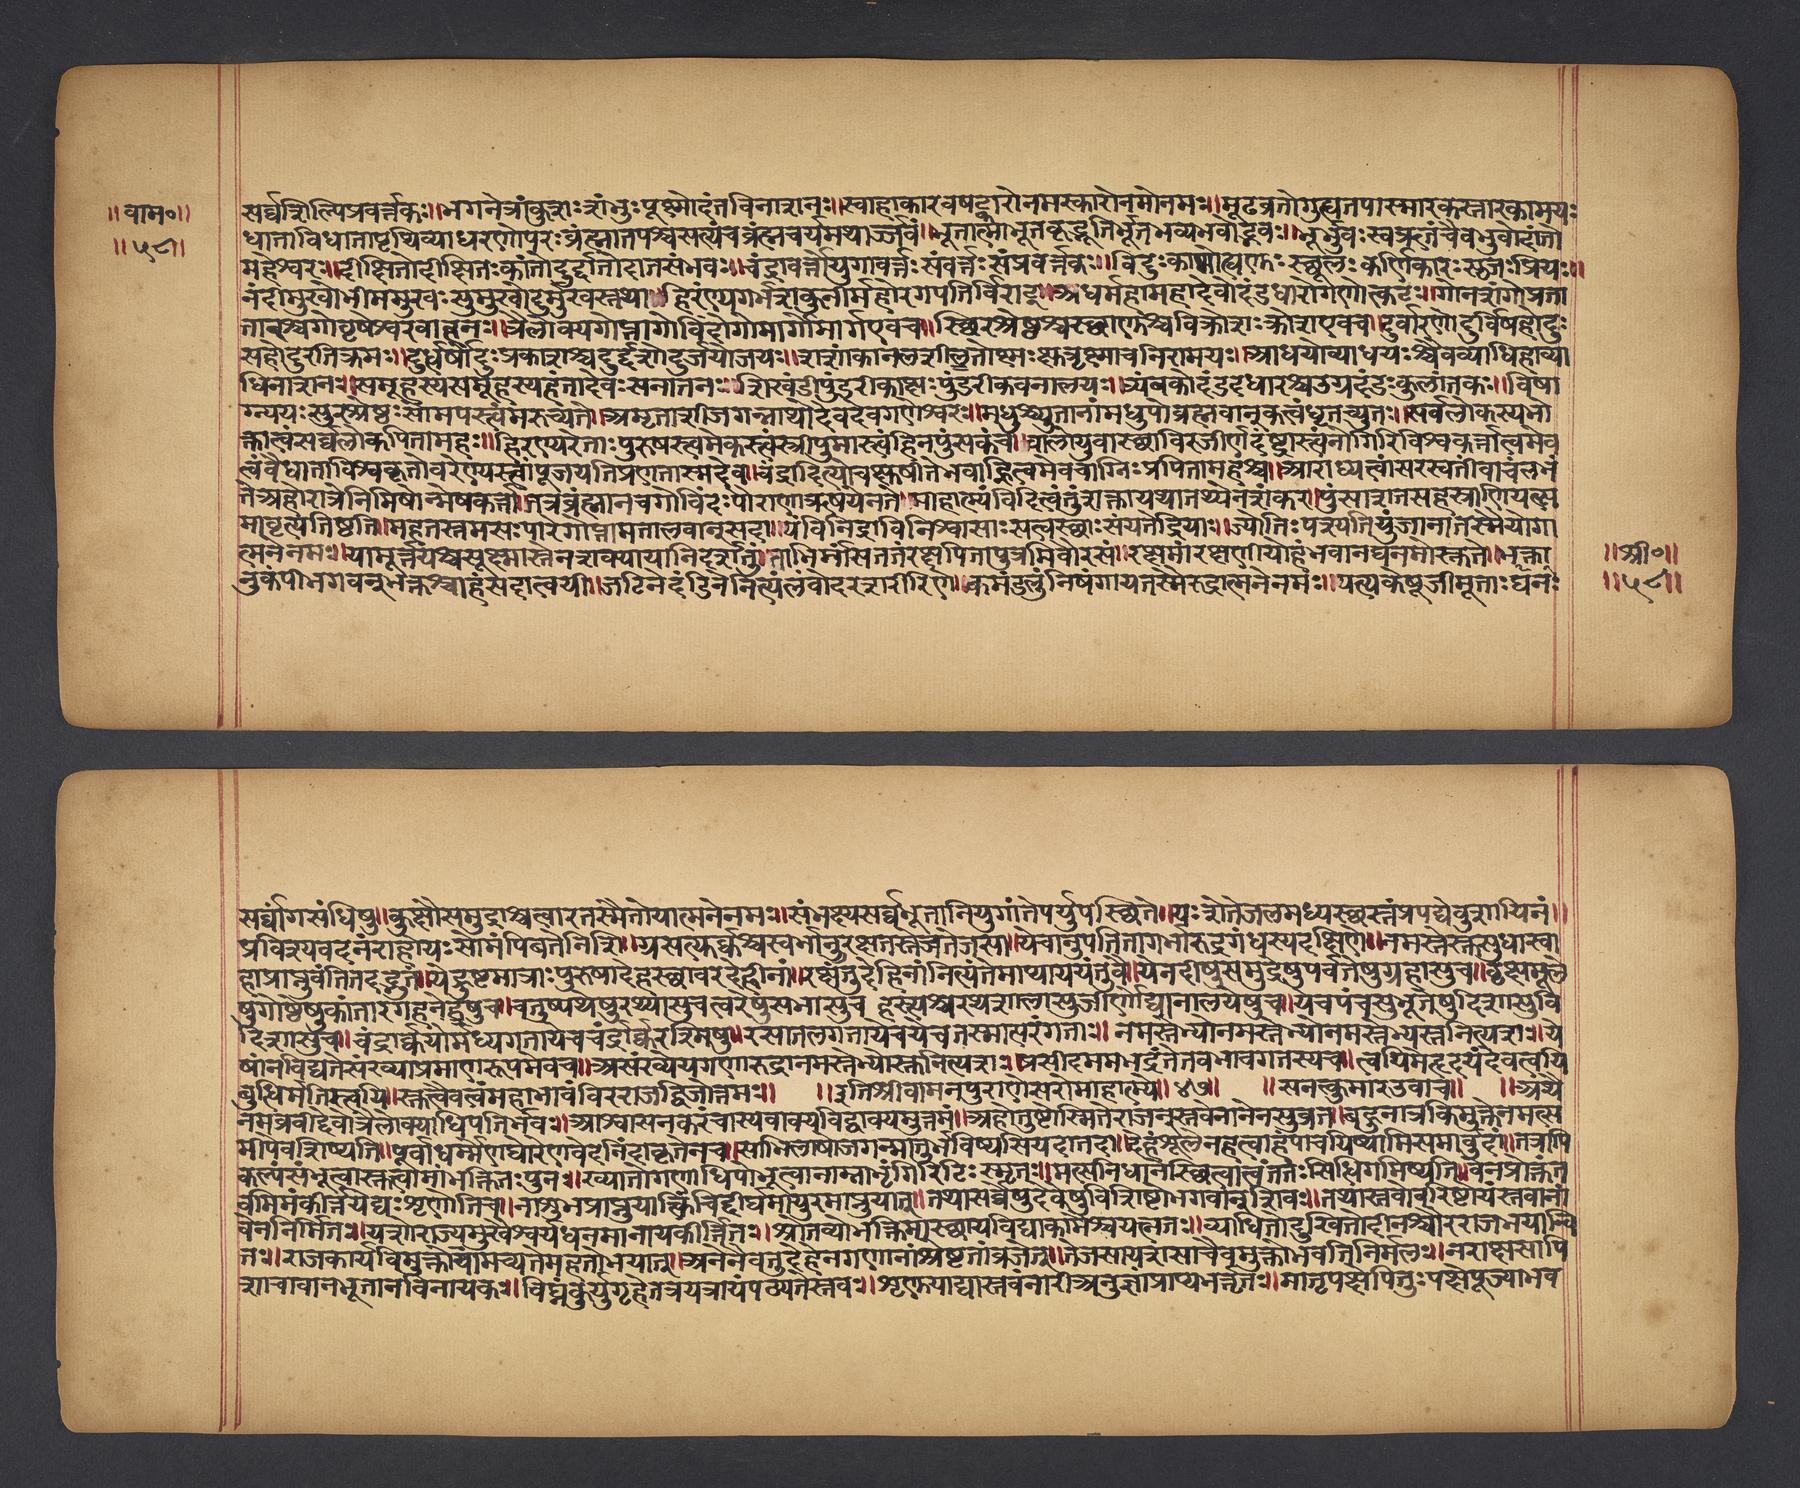 ॥वाम॰॥
॥५८॥
सर्वशिल्पिप्रवर्त्तकः॥भगनेत्रांकुशःशंभुःपूष्णोदंतविनाशनः॥स्वाहाकारवषट्कारोनमस्कारोनमोनमः॥मूढव्रतोगुह्यतपास्मारकस्तारकामयः
धाताविधातापृथिव्याधरणोपुरःब्रंह्मातपश्चसत्यंचब्रंह्मचर्यमथार्ज्जवं॥भूतात्माभूतकृद्भूतिर्भूतभव्यभवोद्भवः॥भूर्भुवःस्वऋतंचैवभुवोदांतो
महेश्वरः॥दीक्षितोदीक्षितःकांतोदुर्द्दांतोदांतसंभवः॥चंद्रावर्त्तोयुगावर्त्तःसंवर्त्तःसंप्रवर्त्तकः॥विंदुःकामोह्यणुःस्थूलःकर्णिकारःस्रजःप्रियः॥
नंदीमुखोभीममुखःसुमुखोदुर्मुखस्तथा॥हिरण्यगर्भशकुनीर्महोरगपतिर्विराट्॥अधर्महामहादेवोदंडधारोगणोत्कटः॥गोनर्शोगोप्रता
तारश्चगोवृषेश्वरवाहनः॥त्रैलोक्यगोप्तागोविंदोगोमार्गोमार्गएवच॥स्थिरश्रेष्ठश्चस्थाणुश्चविक्रोशःक्रोशएवच॥दुर्वारणोदुर्विषहोदुः
सहोदुरतिक्रमः॥दुर्धर्षोदुःप्रकाशश्चदुर्द्दशोदुर्जयोजयः॥शशांकानलशीतोष्णःक्षुत्तृष्णाचनिरामयः॥आधयोव्याधयःश्चैवव्याधिहाव्या
धिनाशनः॥समूहस्यसमूहस्यहंतादेवःसनातनः॥शिखंडीपुंडरीकाक्षःपुंडरीकवनालयः॥त्र्यंबकोदंडदधारश्चउग्रदंडःकुलांतकः॥विषा
ग्न्ययःसुरश्रेष्ठःसोमपस्त्वंमरुत्पते॥अमृताशीजगन्नाथोदेवदेवगणेश्वरः॥मधुश्च्युतानांमधुपोब्रह्मवानुक्त्वंघृतच्युतः॥सर्वलोकस्यभो
क्तात्वंसर्वलोकपितामहः॥हिरण्यरेताःपुरुषस्त्वमेकस्त्वंस्त्रीपुमांस्त्वंहिनपुंसकंच॥बालोयुवास्थविरजीर्णदंष्ट्रास्त्वंनागिरिविश्वकर्त्तात्वमेव
त्वंवैधाताविश्वकृतोवरेण्यस्त्वांपूजयतिप्रणतास्मदेव॥चंद्रादित्योचक्षुषीतेभवांह्नित्वमेवचाग्निःप्रपितामहश्च॥आराध्यत्वांसरस्वतीवाचंलभं
तेअहोरात्रेनिमिषोन्मेषकर्त्ता॥नब्रंह्मानचगोविंदःपौराणाऋषयंनते॥माहात्म्यंविदितुंत्वंशक्तायथातथ्येनशंकर॥पुंसांशतसहस्राणियत्स
मावृत्यतिष्ठति॥महतस्तमसःपारेगोप्तामंतालवानुसदा॥यंविनिद्राविनिश्वासाःसत्वस्थाःसंयतेंद्रियाः॥ज्योतिःपश्यंतियुंजानास्तस्मैयोगा
त्मनेनमः॥यामूर्त्तयश्चसूक्ष्मास्तेनशक्यायानिदर्शितुं॥ताभिर्मांसततंरक्षपितापुत्रमिवौरसं॥रक्षमांरक्षणीयोहंभवानघनमोस्तुते॥भक्ता
नुकंपीभगवन्भक्तश्चाहंसदात्वयी॥जटिनेदंडिनेनित्यंलंबोदरशरीरिणे॥कमंडलुनिषंगायतस्मैरुद्रात्मनेनमः॥यस्यकेषूजीमूताःघनः
॥श्री॰॥
॥५८॥
सर्वांगसंधिषु॥कुक्षौसमुद्राश्चत्वारतस्मैतोयात्मनेनमः॥संभक्ष्यसर्वभूतानियुगांतेपर्युपस्थिते॥यःशेतेजलमध्यस्थस्तंप्रपद्येंबुशायिनं॥
प्रविश्यवदनंराहोयःसोमंपिबतेनिशि॥ग्रसत्यर्कश्चस्वर्भानुरक्षतस्तेजतेजसा॥येचानुपतितागर्भारुद्रगंधस्यरक्षणे॥नमस्तेस्तुसुधास्वा
हाप्राप्नुवंतितदद्भुतं॥येंगुष्टमात्राःपुरुषादेहस्थावरदेहीनां॥रक्षंतुदेहिनांनित्यंतेमाप्याययंतुवै॥येनदीषुसमुद्रेषुपर्वतेषुगुहासुच॥वृक्षमूले
षुगोष्ठेषुकांतारगहनेषुच॥चतुष्पथेषुरथ्यासुचत्वरेषुसभासुच हस्त्यश्वरथशालासुजीर्णोद्यानालयेषुच॥येचपंचसुभूतेषुदिशासुवि
दिशासुच॥चंद्रार्कयोर्मध्यगतायेचचंद्रार्करश्मिषु॥रसातलगतायेचयेचतस्मात्परंगताः॥नमस्तेभ्योनमस्तेभ्योनमस्तेभ्यस्तुनित्यशः॥ये
षांनविद्यतेसंख्याप्रमाणंरूपमेवच॥असंख्येयगणारुद्रानमस्तेभ्योस्तुनित्यशः॥प्रसीदममभद्रंतेतवभावगतस्यच॥त्वयिमेहृदयंदेवत्वयि
बुधिर्मतिस्त्वयि॥स्तुत्वैवंत्वंमहाभावंविररामद्विजोत्तमः॥ ॥इतिश्रीवामनपुराणेसरोमाहात्म्ये॥४७॥ ॥सनत्कुमारउवाच॥ ॥अथै
नमब्रवीद्देवस्त्रैलोक्याधिपतिर्भवः॥आश्वासनकरंचास्यवाक्यविद्वाक्यमुत्तमं॥अहोतुष्टोस्मितेराजन्स्तवेनानेनसुव्रत॥बहुनात्रकिमुक्तेनमत्स
मीपेवशिष्यति॥पूर्वाधर्म्मेणघोरेणवेदनिंदाकृतेनच॥साभिलाषोजगन्मातुर्भविष्यसियदातदा॥देहंशूलेनहत्वाहंपाचयिष्यामिसमार्बुदं॥तत्रापि
कल्पंसंभूत्वास्तुत्वामांभक्तितःपुनः॥ख्यातोगणाधिपोभूत्वानाम्नाभृंगिरिटिःस्मृतः॥मत्सन्निधानेस्थित्वात्वंततःसिधिंगमिष्यति॥वेनप्रोक्तंत
वमिमंकीर्त्तयेद्यःशृणोतिच॥नाशुभंप्राप्नुयात्किंचिद्दीर्घमायुरमाप्नुयात्॥तथासर्वेषुदेवेषुविशिष्टोभगवान्शिवः॥तथास्तवोवरिष्टोयंस्तवानां
वेननिर्मितः॥यशोराज्यसुखैश्वर्यधनमानायकीर्त्तितः॥श्रोतव्योभक्तिमास्थायविद्याकामैश्चयत्नतः॥व्याधितोदुःखितोदीनश्चौरराजभयान्वि
तः॥राजकार्यविमुक्तोवामुच्यतेमहतोभयात्॥अनेनैवतुदेहेनगणानांश्रेष्टतांव्रजेत्॥तेजसायशसाचैवमुक्तोभवतिनिर्मलः॥नराक्षसापि
शाचावानभूतानविनायकः॥विघ्नंकुर्युर्गृहेतत्रयत्रायंपठ्यतेस्तवः॥शृणुयाद्यास्तवंनारीअनुज्ञांप्राप्यभर्त्तृतः॥मातृपक्षेपितुःपक्षेपूज्याभव